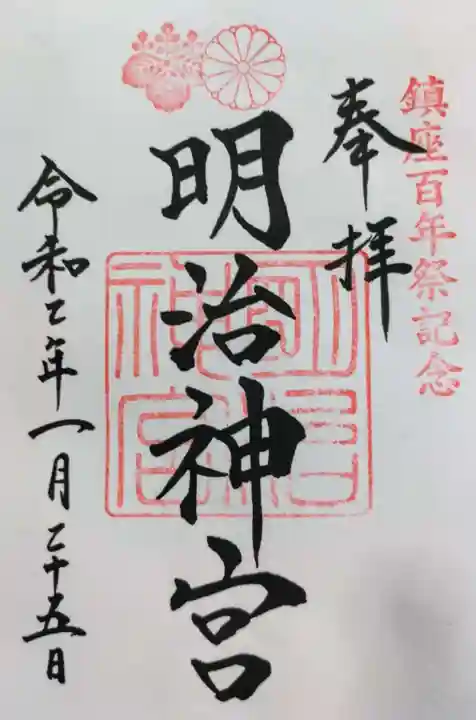 鎮座百年祭記念
奉拝
明治神宮
明治神宮
令和二年一月二十五日